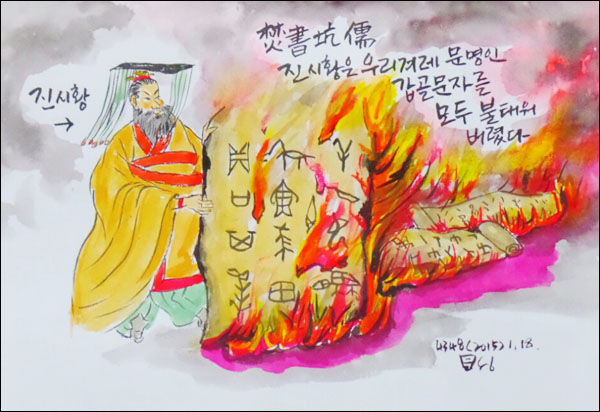 焚書坑儒
진시황은 우리겨레 문명인
갑골문자를
모두 불태워
버렸다
진시황
4348(2015).1.18.